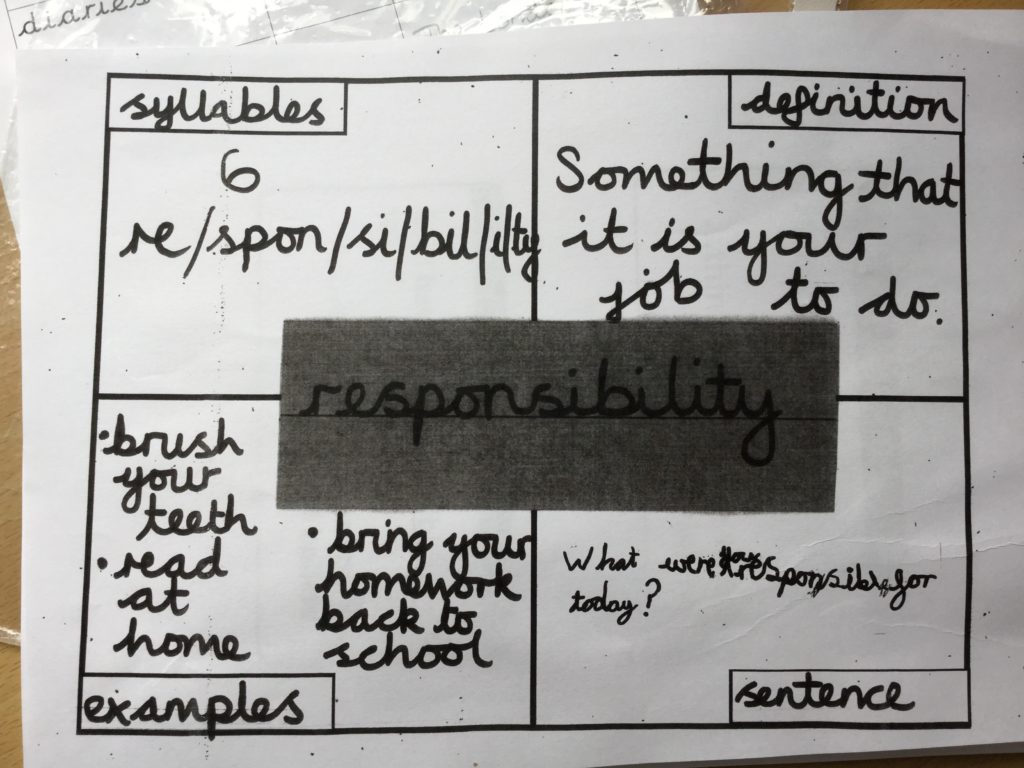 diaries
syllables
6
re/spon/si/bil/i/ty
definition
Something that
it is your
job to do.
responsibility
• brush
your
teeth
• read
at
home
• bring your
homework
back to
school
examples
What were responsible for
today?
sentence